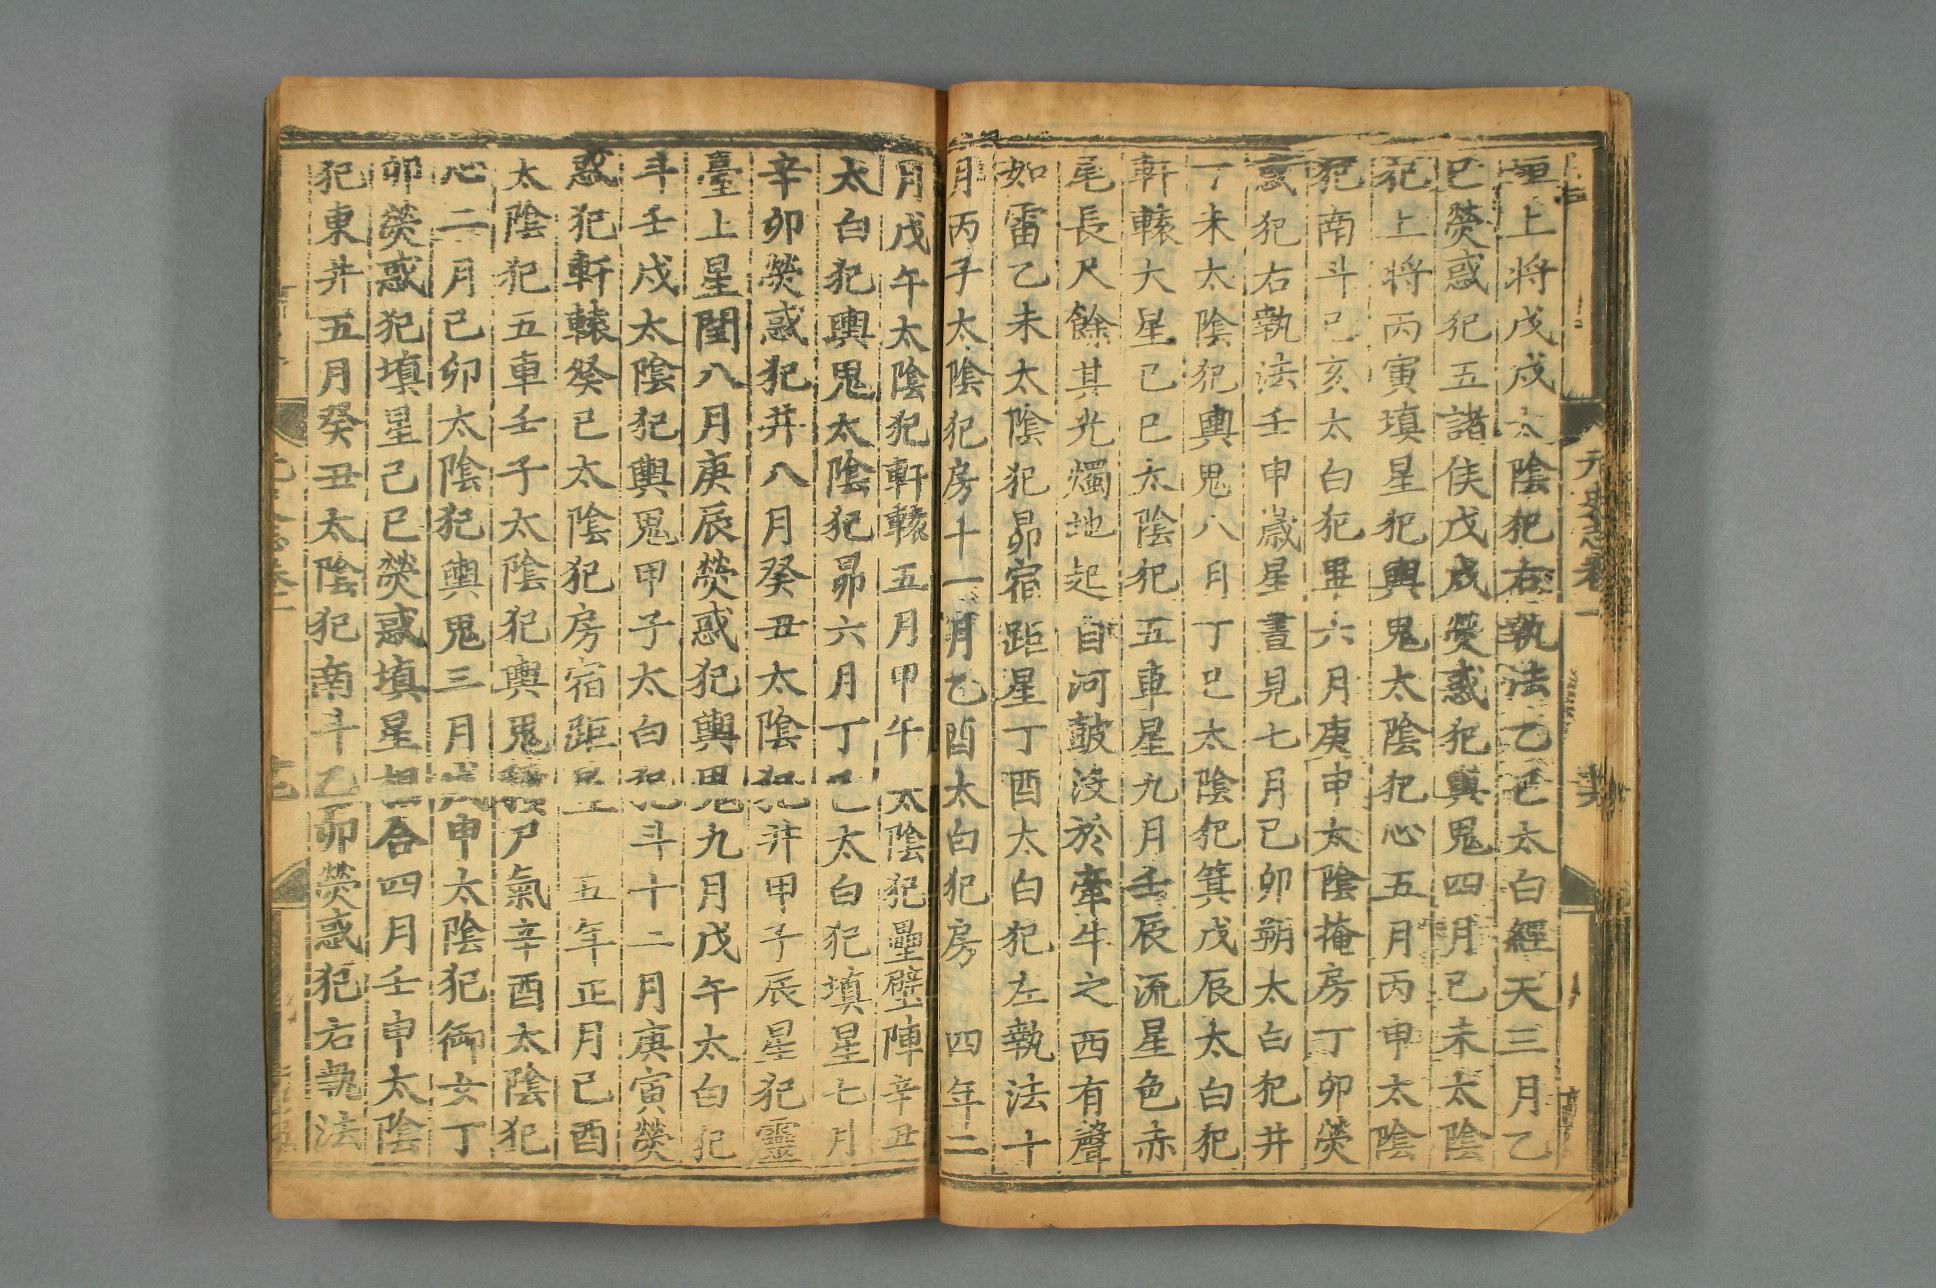 元史志卷一
垣上將戊戌太陰犯右執法乙巳太白經天三月乙
巳熒惑犯五諸侯戊戌熒惑犯輿鬼四月己未太陰
犯上將丙寅填星犯輿鬼太陰犯心五月丙申太陰
犯南斗己亥太白犯畢六月庚申太陰掩房丁卯熒
惑犯右執法壬申歲星晝見七月己卯朔太白犯井
丁未太陰犯輿鬼八月丁巳太陰犯箕戊辰太白犯
軒轅大星己巳太陰犯五車星九月壬辰流星色赤
尾長尺餘其光燭地起自河鼓沒於牽牛之西有聲
如雷乙未太陰犯昴宿距星丁酉太白犯左執法十
月丙子太陰犯房十一月乙酉太白犯房 四年二
月戊午太陰犯軒轅五月甲午太陰犯壘壁陣辛丑
太白犯輿鬼太陰犯昴六月丁巳太白犯填星七月
辛卯熒惑犯井八月癸丑太陰犯井甲子辰星犯靈
臺上星閏八月庚辰熒惑犯輿鬼九月戊午太白犯
斗壬戌太陰犯輿鬼甲子太白犯斗十二月庚寅熒
惑犯軒轅癸巳太陰犯房宿距星 五年正月己酉
太陰犯五車壬子太陰犯輿鬼積尸氣辛酉太陰犯
心二月己卯太陰犯輿鬼三月戊申太陰犯御女丁
卯熒惑犯填星己巳熒惑填星相合四月壬申太陰
犯東井五月癸丑太陰犯南斗乙卯熒惑犯右執法